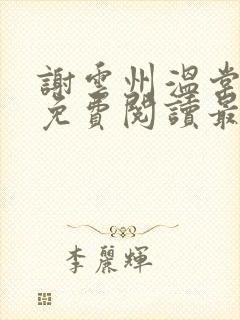 謝雲州溫當
免費閱讀最
李麗輝